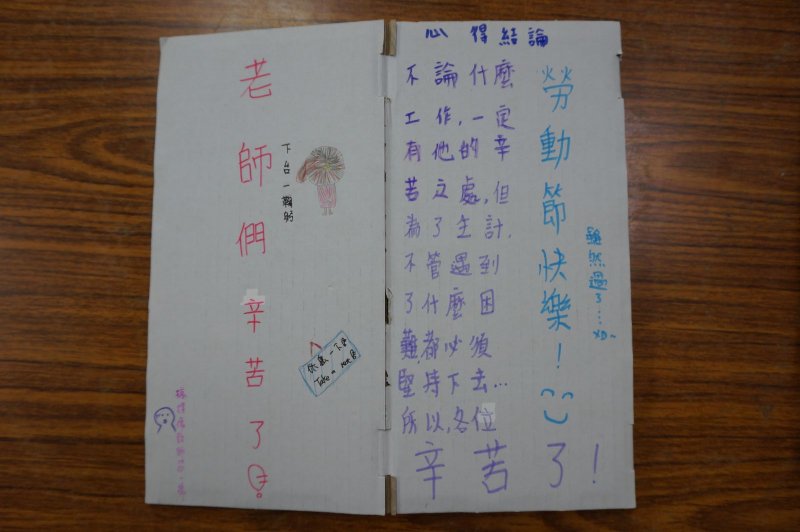 老師們辛苦了
下台一鞠躬
休息一下吧
Take a rest 吧
心得結論
不論什麼
工作,一定
有他的辛
苦之處,但
為了生計.
不管遇到
了什麼困
難都必須
堅持下去...
所以,各位
辛苦了!
勞動節快樂!
雖然過了...XD~